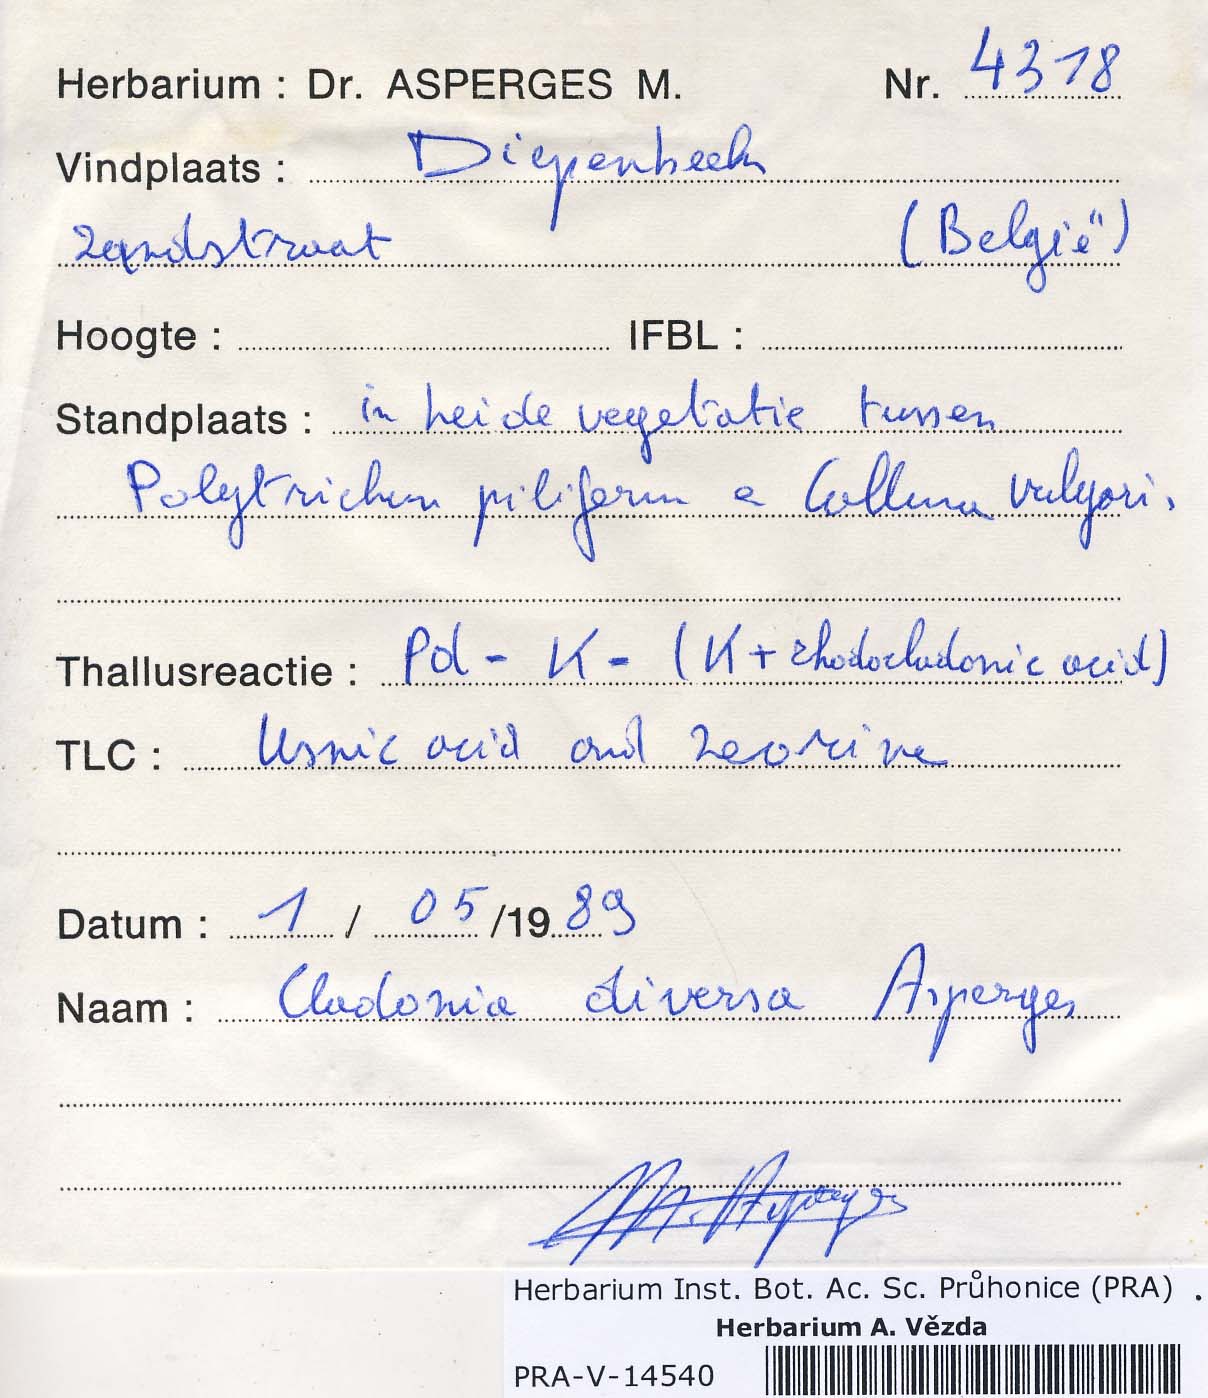 Herbarium : Dr. ASPERGES M. Nr. 4318
Vindplaats : Diepenbeek
Zandstraat (België)
Hoogte : IFBL :
Standplaats : in heide vegetatie tussen
Polytrichum piliferum e Calluna vulgari.
Thallusreactie : Pd - K - (K + rhodocladonic acid)
TLC : Usnic acid and zeorine
Datum : 1 / 05 /19 89
Naam : Cladonia diversa Asperges
M. Asperges
Herbarium Inst. Bot. Ac. Sc. Průhonice (PRA) .
Herbarium A. Vězda
PRA-V-14540